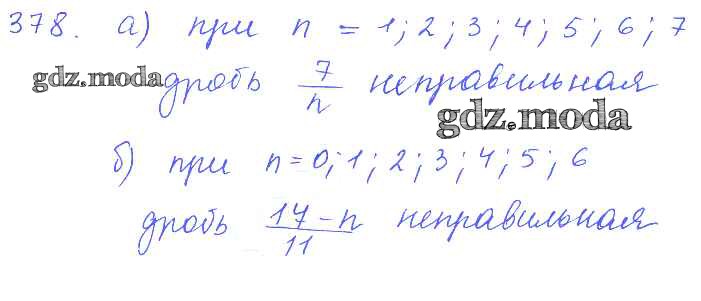 378. а) при n = 1; 2; 3; 4; 5; 6; 7
gdz.moda дробь 7/n неправильная
gdz.moda
б) при n = 0; 1; 2; 3; 4; 5; 6
дробь 17-n/11 неправильная